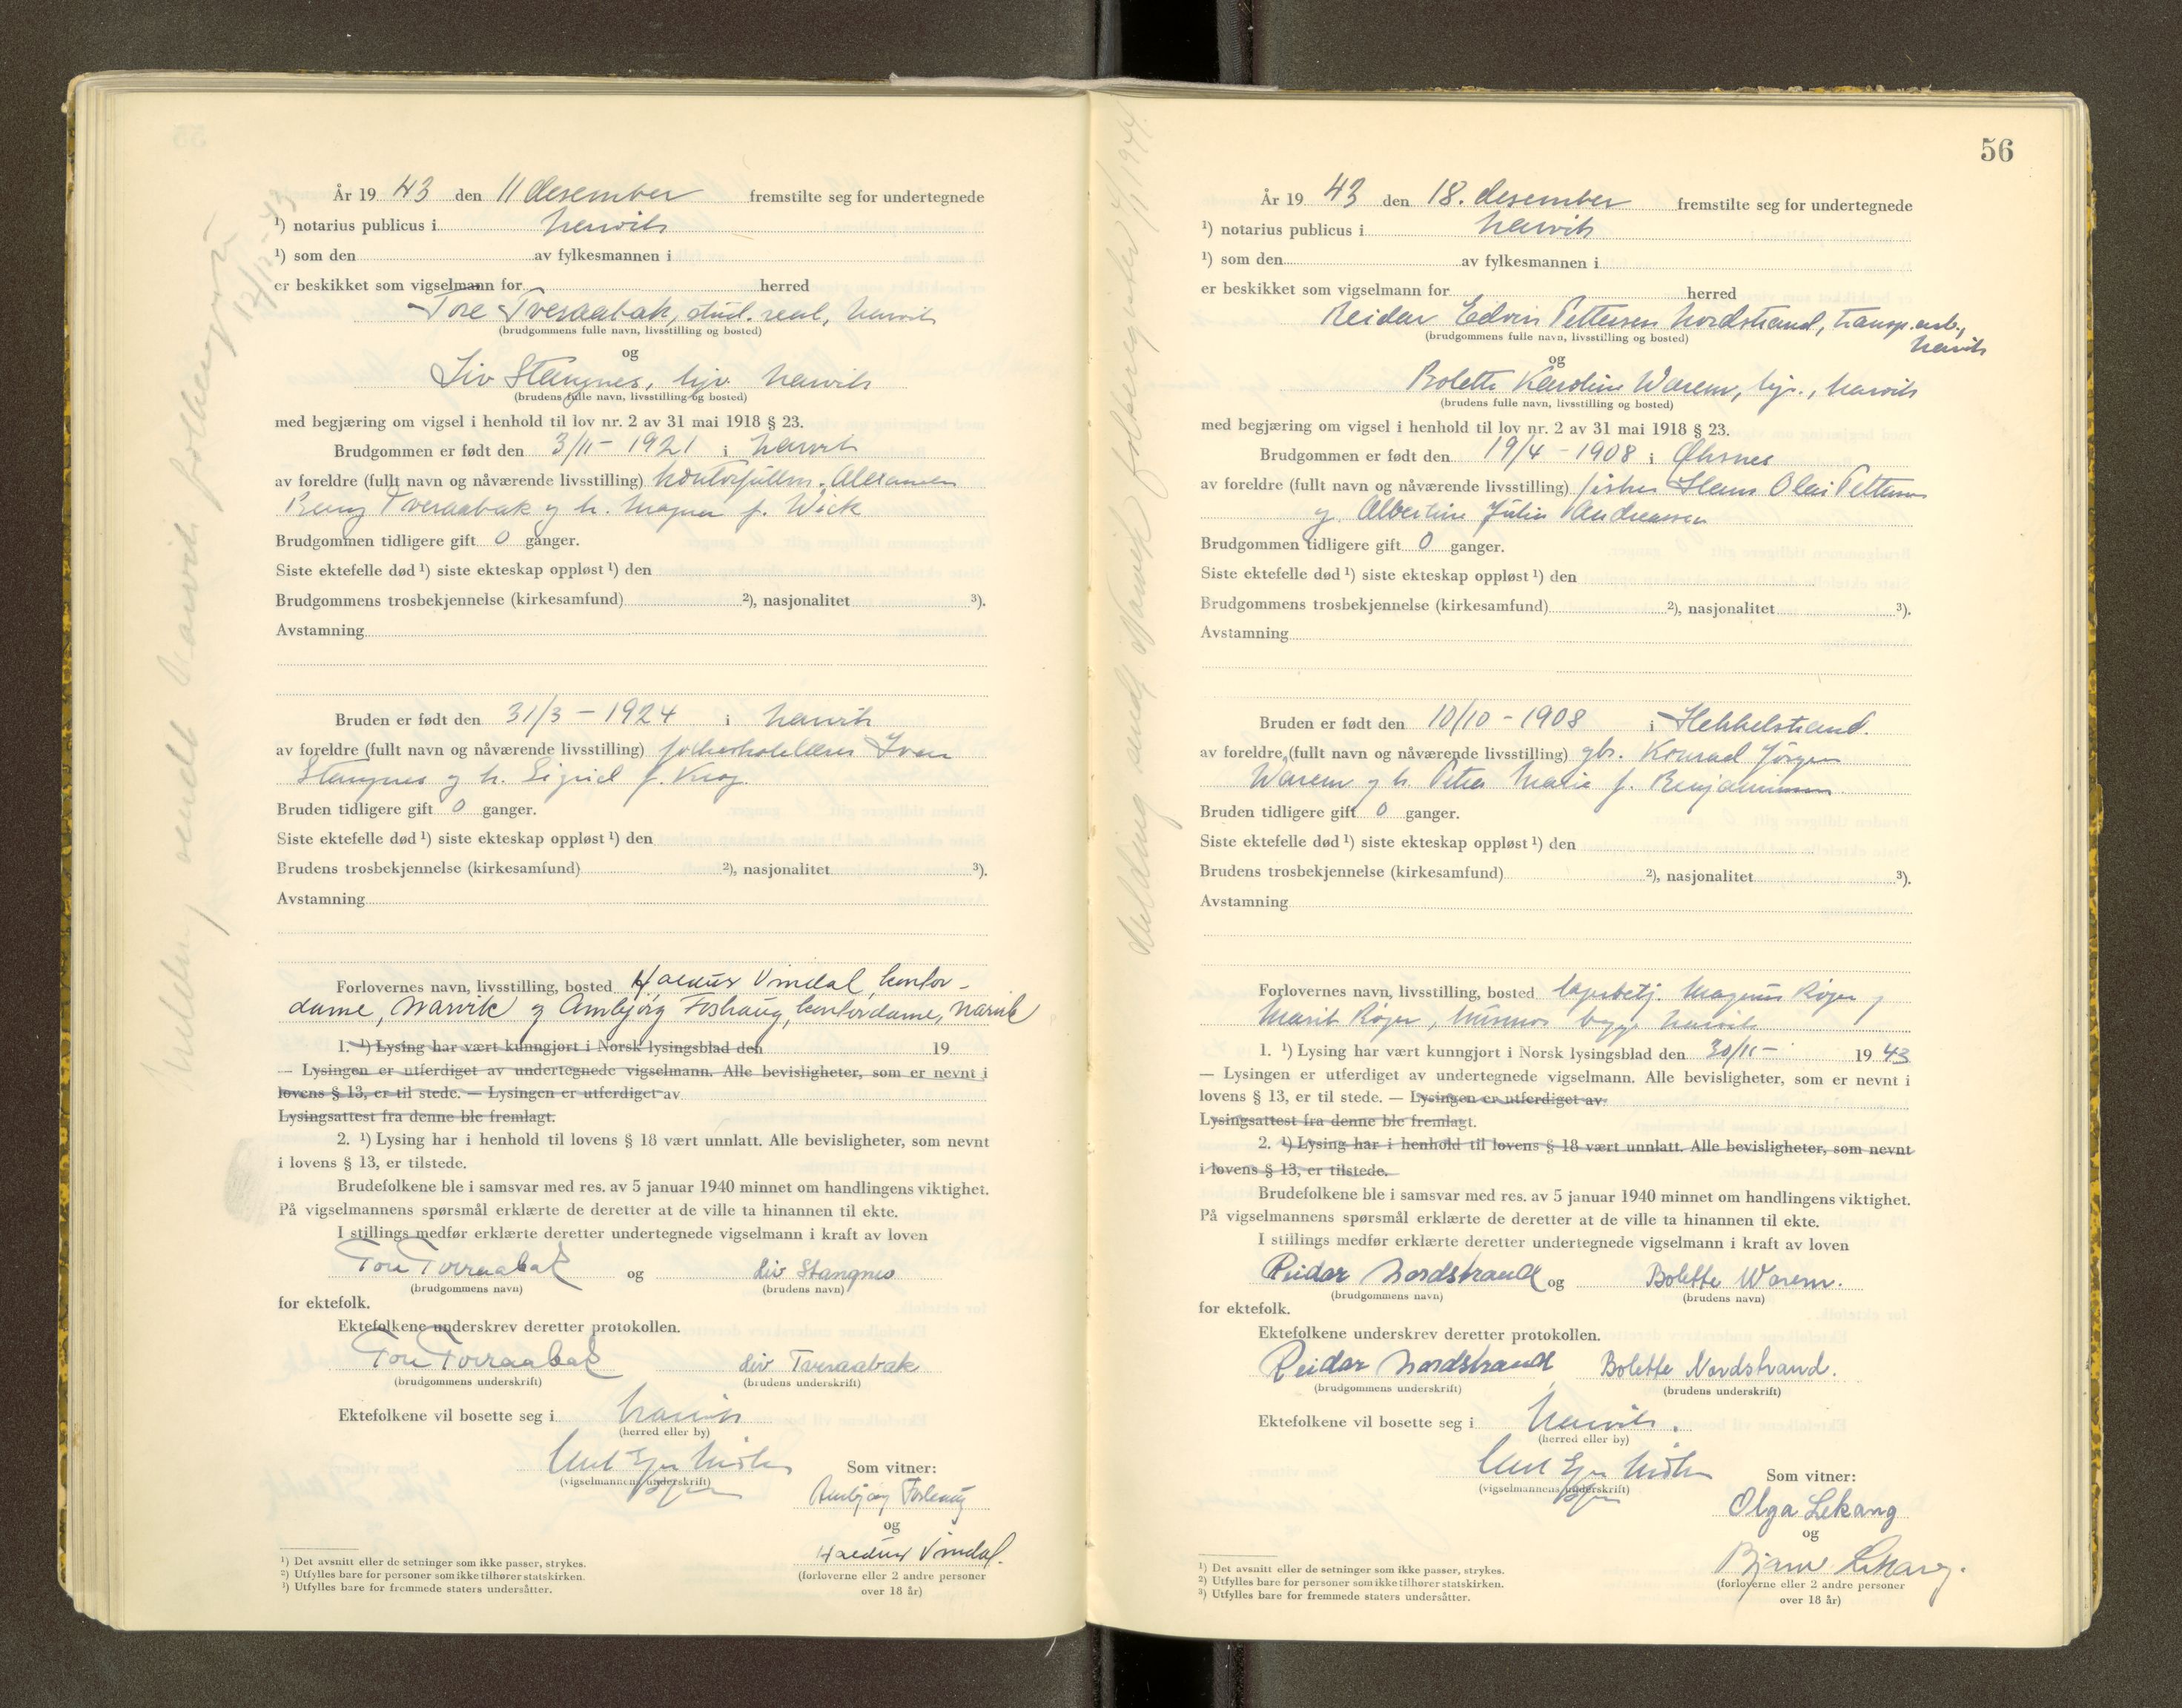 År 19 43 den 11 desember fremstilte seg for undertegnede
¹) notarius publicus i Narvik
¹) som den av fylkesmannen i
er beskikket som vigselmann for herred
Tore Tveraabak, stud. real, Narvik
(brudgommens fulle navn, livsstilling og bosted)
og
Liv Stangnes, hjv. Narvik
(brudens fulle navn, livsstilling og bosted)
med begjæring om vigsel i henhold til lov nr. 2 av 31 mai 1918 § 23.
Brudgommen er født den 3/11 - 1921 i Narvik
av foreldre (fullt navn og nåværende livsstilling) kontorfullm.
Tveraabak og h. Magna f. Wick
Brudgommen tidligere gift 0 ganger.
Siste ektefelle død ¹) siste ekteskap oppløst ¹) den
Brudgommens trosbekjennelse (kirkesamfund) ²), nasjonalitet ³).
Avstamning
Bruden er født den 31/3 - 1924 i Narvik
av foreldre (fullt navn og nåværende livsstilling) Ivar
Stangnes og h. Sigrid f. Krog.
Bruden tidligere gift 0 ganger.
Siste ektefelle død ¹) siste ekteskap oppløst ¹) den
Brudens trosbekjennelse (kirkesamfund) ²), nasjonalitet ³).
Avstamning
Forlovernes navn, livsstilling, bosted Haldur Vindal, kontor-
dame, Narvik og Arnbjørg Foshaug, kontordame, Narvik
1. ¹) Lysing har vært kunngjort i Norsk lysingsblad den 19
— Lysingen er utferdiget av undertegnede vigselmann. Alle bevisligheter, som er nevnt i
lovens § 13, er til stede. — Lysingen er utferdiget av
Lysingsattest fra denne ble fremlagt.
2. ¹) Lysing har i henhold til lovens § 18 vært unnlatt. Alle bevisligheter, som nevnt
i lovens § 13, er tilstede.
Brudefolkene ble i samsvar med res. av 5 januar 1940 minnet om handlingens viktighet.
På vigselmannens spørsmål erklærte de deretter at de ville ta hinannen til ekte.
I stillings medfør erklærte deretter undertegnede vigselmann i kraft av loven
Tore Tveraabak og Liv Stangnes
(brudgommens navn) (brudens navn)
for ektefolk.
Ektefolkene underskrev deretter protokollen.
Tore Tveraabak Liv Tveraabak
(brudgommens underskrift) (brudens underskrift)
Ektefolkene vil bosette seg i Narvik
(herred eller by)
(vigselmannens underskrift)
Som vitner:
Arnbjørg Foshaug
og
Haldur Vindal.
(forloverne eller 2 andre personer
over 18 år)
¹) Det avsnitt eller de setninger som ikke passer, strykes.
²) Utfylles bare for personer som ikke tilhører statskirken.
³) Utfylles bare for fremmede staters undersåtter.
Melding sendt Narvik folkeregister
13/12-43
56
År 19 43 den 18. desember fremstilte seg for undertegnede
¹) notarius publicus i Narvik
¹) som den av fylkesmannen i
er beskikket som vigselmann for herred
Reidar Edvin Pettersen Nordstrand, transp.arb.,
Narvik
(brudgommens fulle navn, livsstilling og bosted)
og
Bolette Karoline Warem, hjv., Narvik
(brudens fulle navn, livsstilling og bosted)
med begjæring om vigsel i henhold til lov nr. 2 av 31 mai 1918 § 23.
Brudgommen er født den 19/4 - 1908 i Øksnes
av foreldre (fullt navn og nåværende livsstilling) fisker Hans Olai Pettersen
og Albertine Julie Andreassen
Brudgommen tidligere gift 0 ganger.
Siste ektefelle død ¹) siste ekteskap oppløst ¹) den
Brudgommens trosbekjennelse (kirkesamfund) ²), nasjonalitet ³).
Avstamning
Bruden er født den 10/10 - 1908 i Hekkelstrand.
av foreldre (fullt navn og nåværende livsstilling) gbr. Konrad Jørgen
Warem og h. Petra Marie f. Benjaminsen
Bruden tidligere gift 0 ganger.
Siste ektefelle død ¹) siste ekteskap oppløst ¹) den
Brudens trosbekjennelse (kirkesamfund) ²), nasjonalitet ³).
Avstamning
Forlovernes navn, livsstilling, bosted lagerbetj. Magnus Røger og
Marit Røger, husmor begge Narvik
1. ¹) Lysing har vært kunngjort i Norsk lysingsblad den 30/11 - 19 43
— Lysingen er utferdiget av undertegnede vigselmann. Alle bevisligheter, som er nevnt i
lovens § 13, er til stede. — Lysingen er utferdiget av
Lysingsattest fra denne ble fremlagt.
2. ¹) Lysing har i henhold til lovens § 18 vært unnlatt. Alle bevisligheter, som nevnt
i lovens § 13, er tilstede.
Brudefolkene ble i samsvar med res. av 5 januar 1940 minnet om handlingens viktighet.
På vigselmannens spørsmål erklærte de deretter at de ville ta hinannen til ekte.
I stillings medfør erklærte deretter undertegnede vigselmann i kraft av loven
Reidar Nordstrand og Bolette Warem.
(brudgommens navn) (brudens navn)
for ektefolk.
Ektefolkene underskrev deretter protokollen.
Reidar Nordstrand Bolette Nordstrand.
(brudgommens underskrift) (brudens underskrift)
Ektefolkene vil bosette seg i Narvik.
(herred eller by)
(vigselmannens underskrift)
Som vitner:
Olga Lekang
og
Bjarne Lekang.
(forloverne eller 2 andre personer
over 18 år)
¹) Det avsnitt eller de setninger som ikke passer, strykes.
²) Utfylles bare for personer som ikke tilhører statskirken.
³) Utfylles bare for fremmede staters undersåtter.
Melding sendt Narvik folkeregister 1944.